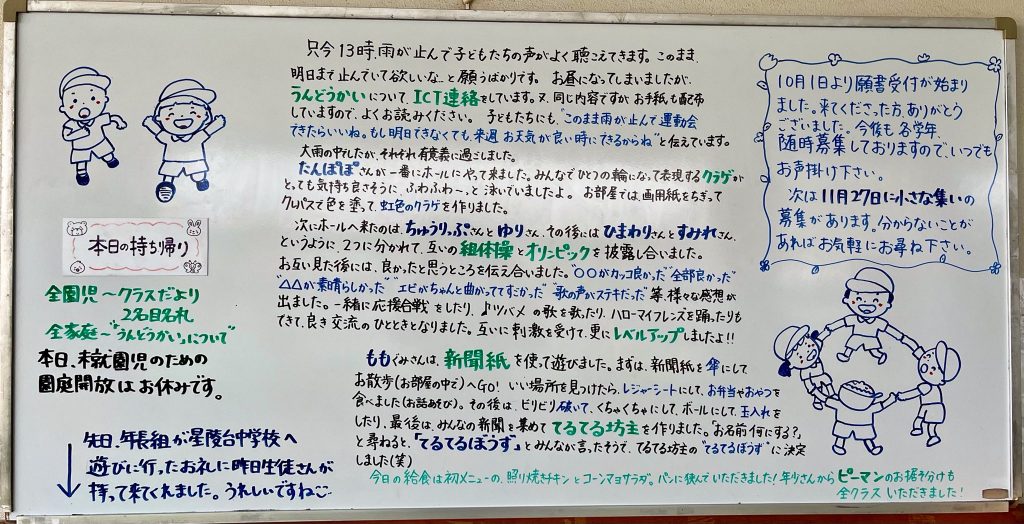 只今13時、雨が止んで子どもたちの声がよく聴こえてきます。このまま、
明日まで止んでいて欲しいな…と願うばかりです。 お昼になってしまいましたが、
うんどうかいについて、ICT連絡をしています。又、同じ内容ですがお手紙も配布
していますので、よくお読みください。 子どもたちにも、“このまま雨が止んで運動会
できたらいいね。もし明日できなくても来週 お天気が良い時にできるからね”と伝えています。
大雨の中でしたが、それぞれ有意義に過ごしました。
たんぽぽさんが一番にホールにやって来ました。みんなでひとつの輪になって表現するクラゲが
とっても気持ち良さそうに、ふわふわ〜、と泳いでいましたよ。 お部屋では、画用紙をちぎって
クレパスで色を塗って、虹色のクラゲを作りました。
次にホールへ来たのは、ちゅうりっぷさんとゆりさん、その後にはひまわりさんとすみれさん、
というように、2つに分かれて、互いの組体操とオリンピックを披露し合いました。
お互い見た後には、良かったと思うところを伝え合いました。“〇〇がカッコ良かった”“全部良かった”
“△△が素晴らしかった”“エビがちゃんと曲がっててすごかった”“歌の声がステキだった”等、様々な感想が
出ました。一緒に応援合戦をしたり、♪ツバメの歌を歌ったり、ハローマイフレンズを踊ったりも
できて、良き交流のひとときとなりました。互いに刺激を受けて、更にレベルアップしましたよ!!
ももぐみさんは、新聞紙を使って遊びました。まずは、新聞紙を傘にして
お散歩(お部屋の中で)へGo! いい場所を見つけたら、レジャーシートにして、お弁当やおやつを
食べました(お話あそび)。その後は、ビリビリ破いて、くちゃくちゃにして、ボールにして、玉入れを
したり、最後は、みんなの新聞を集めててるてる坊主を作りました。“お名前何にする?”
と尋ねると、「てるてるぼうず」とみんなが言ったそうで、てるてる坊主の“てるてるぼうず”に決定
しました(笑)
今日の給食は初メニューの、照り焼きチキンとコーンマヨサラダ。パンに挟んでいただきました!年少さんからピーマンのお裾分けも
全クラスいただきました!
本日の持ち帰り
全園児〜クラスだより
2名目名札
全家庭〜“うんどうかい”について
本日、未就園児のための
園庭開放はお休みです。
先日、年長組が星陵台中学校へ
遊びに行ったお礼に昨日生徒さんが
持って来てくれました。うれしいですね
10月1日より願書受付が始まり
ました。来てくださった方、ありがとう
ございました。今後も各学年、
随時募集しておりますので、いつでも
お声掛け下さい。
次は11月27日に小さな集いの
募集があります。分からないことが
あればお気軽にお尋ね下さい。